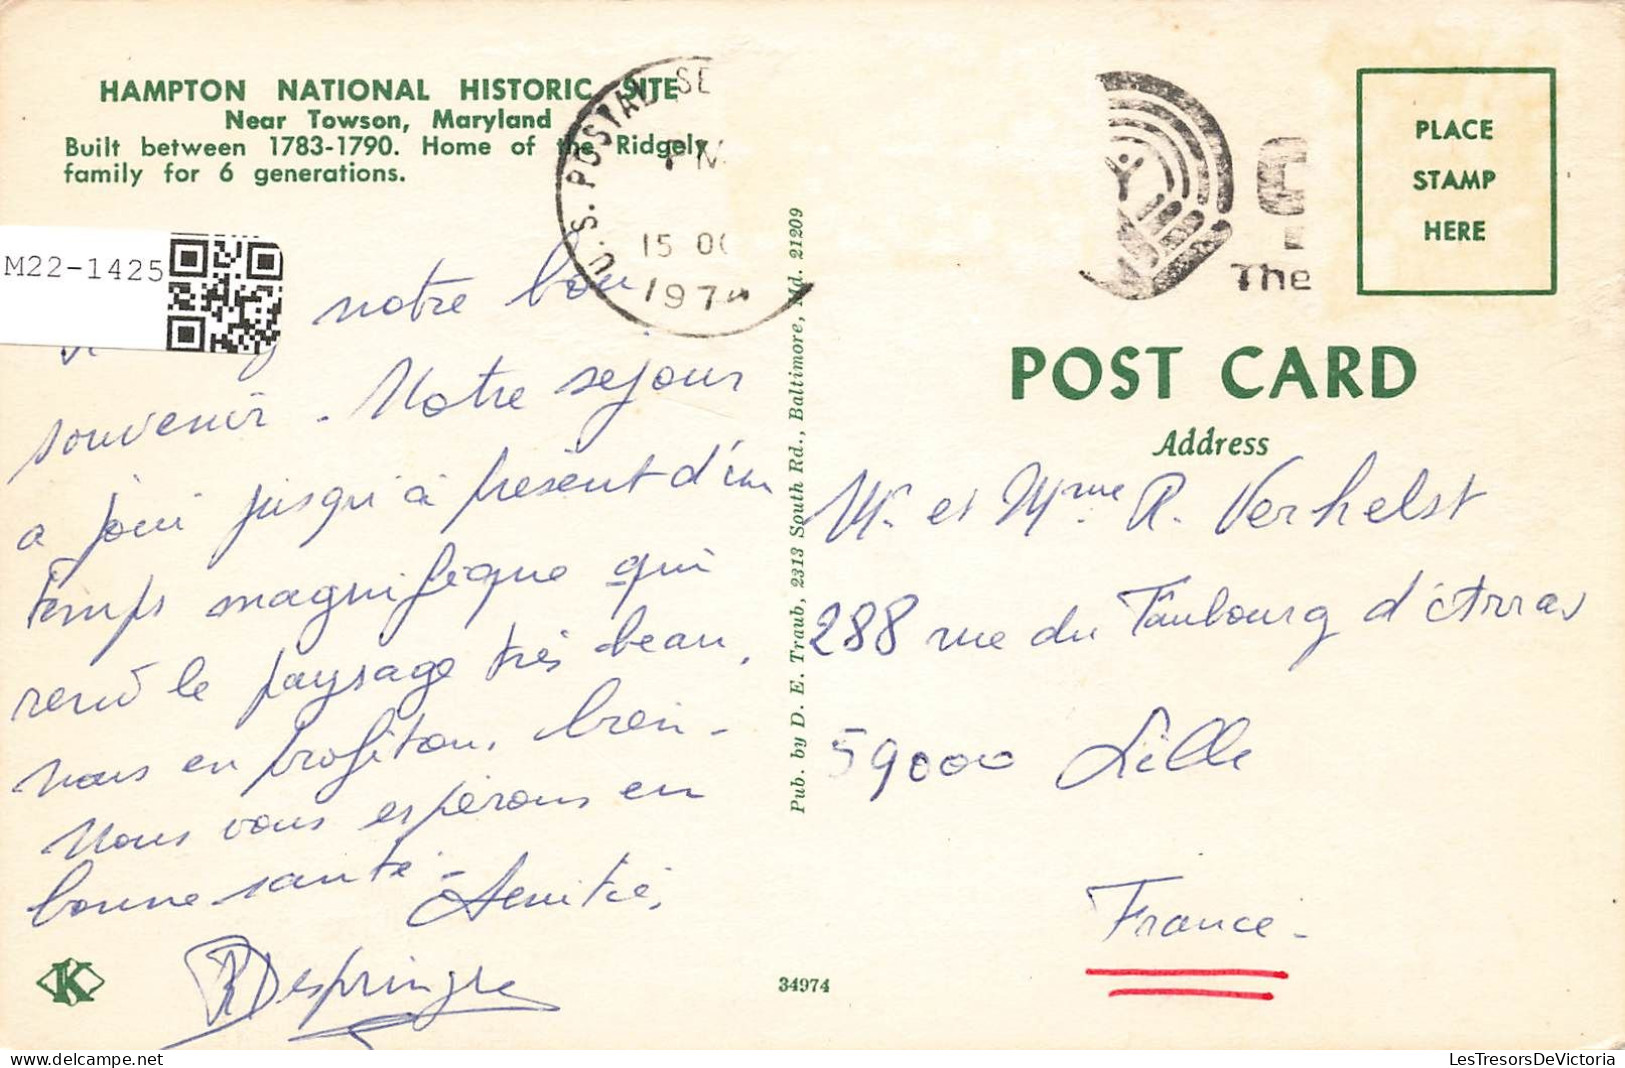 HAMPTON NATIONAL HISTORIC SITE
Near Towson, Maryland
Built between 1783-1790. Home of the Ridgely
family for 6 generations.
M22-1425
U.S. POSTAL SE
PM
15 OC
1974
The
PLACE
STAMP
HERE
notre bon
souvenir - Notre séjour
a joui jusqu'à présent d'un
temps magnifique qui
rend le paysage très beau,
nous en profitons bien -
Nous vous espérons en
bonne santé -
Amitié,
RDespringre
Pub. by D. E. Traub, 2313 South Rd., Baltimore, Md. 21209
34974
K
POST CARD
Address
Mr. et Mme R. Verhelst
288 rue du Faubourg d'Arras
59000 Lille
France -
LesTresorsDeVictoria